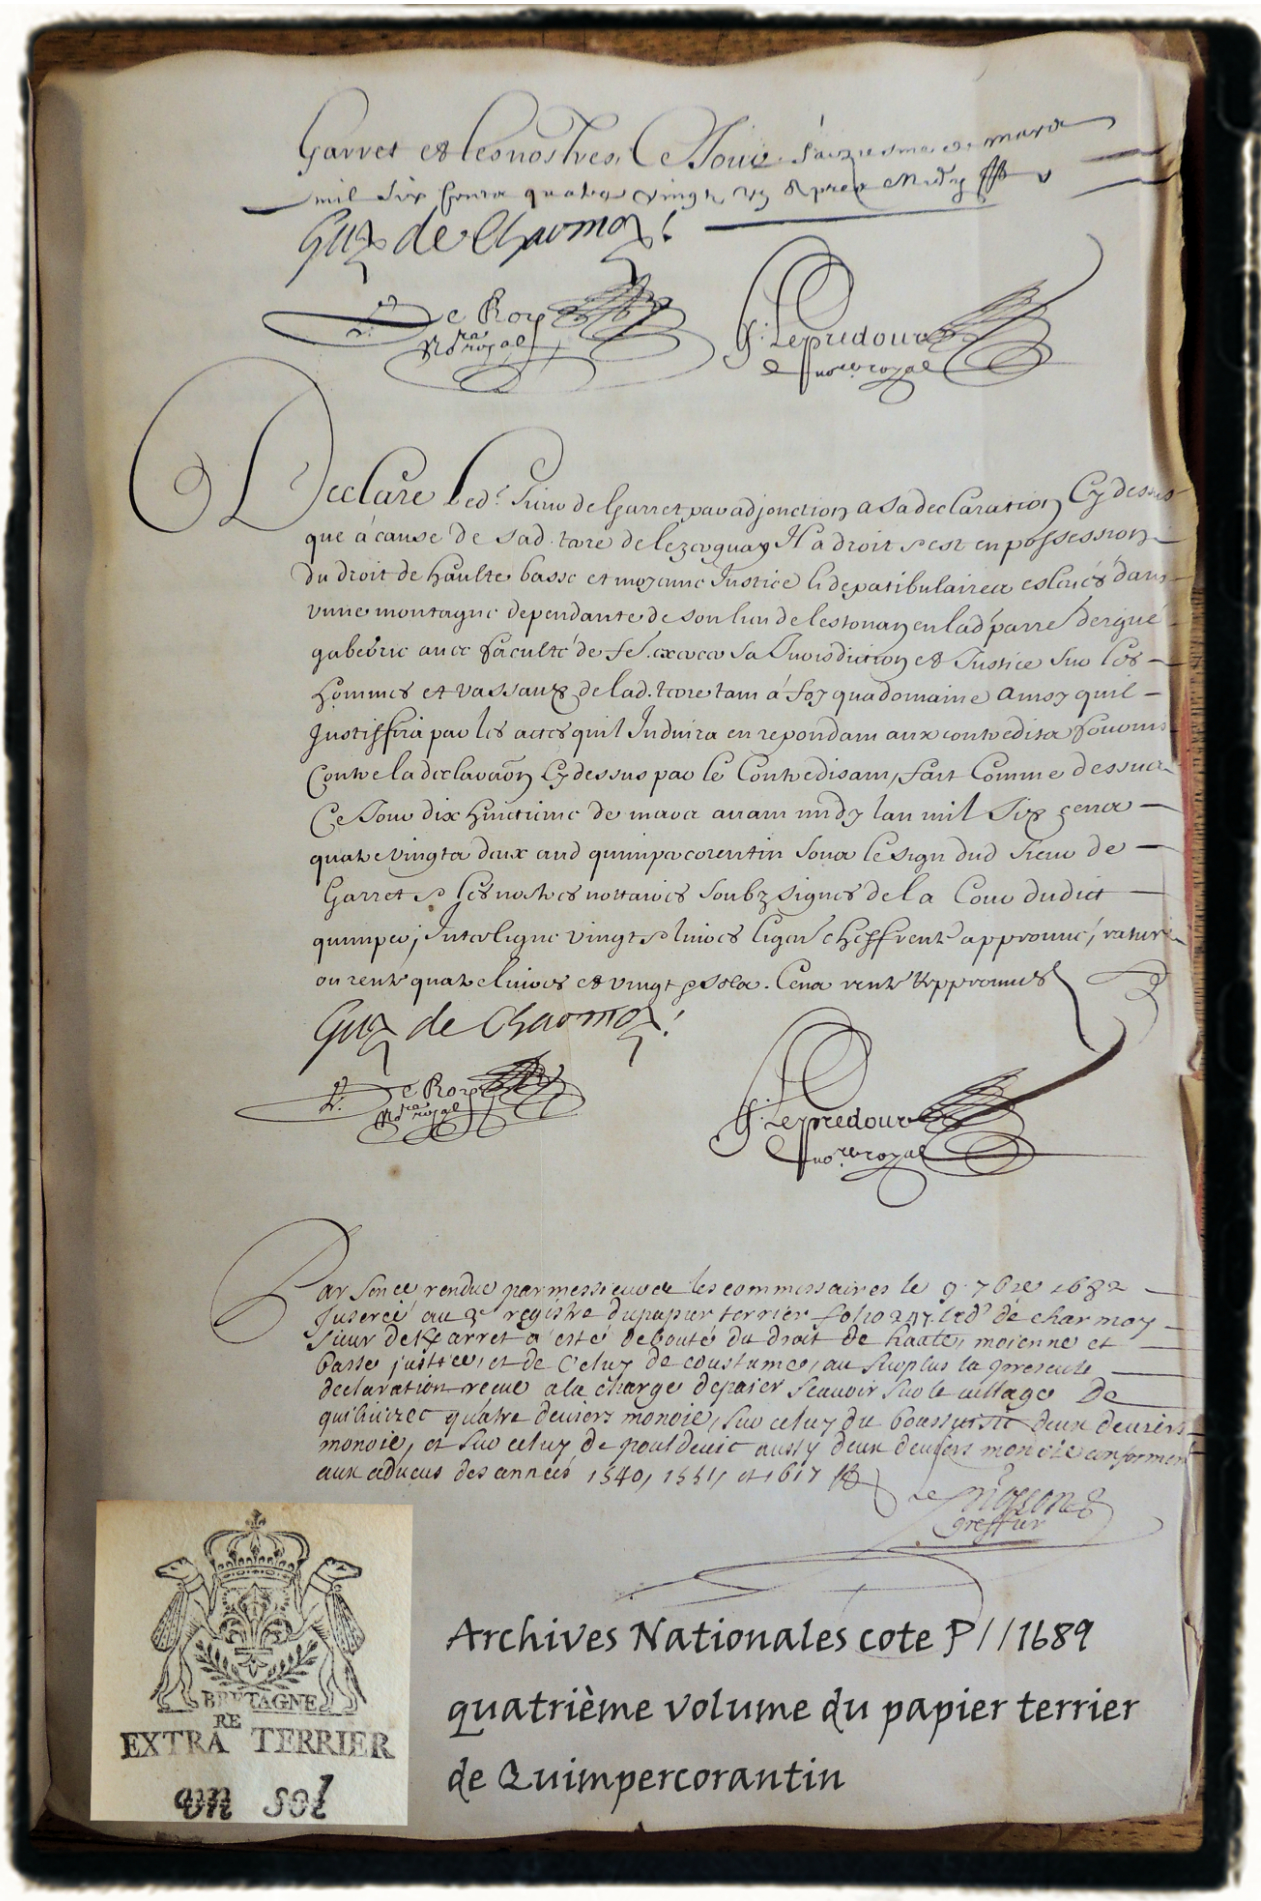 Garret et les nostres, Ce Jour saiziesme de mars
mil six cents quatre vingt apres midy
Guy de Charmoy
Le Roy
No.re royal
G: Lepredour
no.re royal
Declare led.t Sieur de Garret par adjonction a sa declaration Cy dessus
que á cause de sad. terre de lezerguay Il a droit et est en possession
du droit de haulte basse et moyenne Justice à patibulaires eslevés dans
vune montagne dependante de son lieu de lestonan en lad. parre dergué
gaberic avec faculté de fe. exercer sa Jurisdiction et Justice sur les
hommes et vassaux de lad. terre tam á foy qua domaine ainsy quil
Justiffira par les actes quil Induira en repondam aux contredits fournis
Contre la declaraon Cy dessus par le Contredisam, fait Comme dessus
Ce Jour dix huictieme de mars avam midy lan mil Six cents
quatre vingts deux aud quimpercorentin soubs le sign dud Sieur de
Garret et les nostres nottaires soubz signes de la Cour dudict
quimper, Interligne vingt et livres rente approuvé, rature
ou rente quatre livres et vingt sols. Cens rente approuves
Guy de Charmoy
Le Roy
No.re royal
G: Lepredour
no.re royal
Par Sence rendue par messieurs les commissaires le 9. 7bre 1682
Inseree au 2e registre du papier terrier folio 247. led.t de charmoy
Sieur de Karret a esté debouté du droit de haute, moienne et
basse justice, et de Celuy de coustume, au surplus la presente
declaration receue a la charge de paier Scauoir sur le village De
quilihuec quatre deniers monoie, sur celuy du boassuisic deux deniers
monoie, et sur celuy de pouldeuic aussy deux deniers monoie conformem
aux adueus des années 1540, 1551, et 1617
greffier
BRETAGNE
RE
EXTRA TERRIER
un sol
Archives Nationales cote P//1689
quatrième volume du papier terrier
de Quimpercorantin